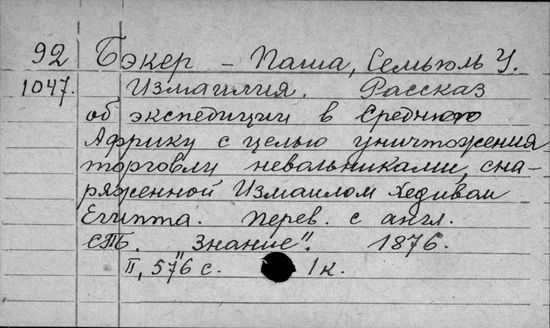 92 Бэкер - Паша, Семьюль У.
1047. Измаилия. Рассказ
об экспедиции в Среднюю
Африку с целью уничтожения
торговли невольниками, сна-
ряженной Измаилом хедивом
Египта. Перев. с англ.
СПб. "Знание". 1876.
II, 576 с. 1 к.